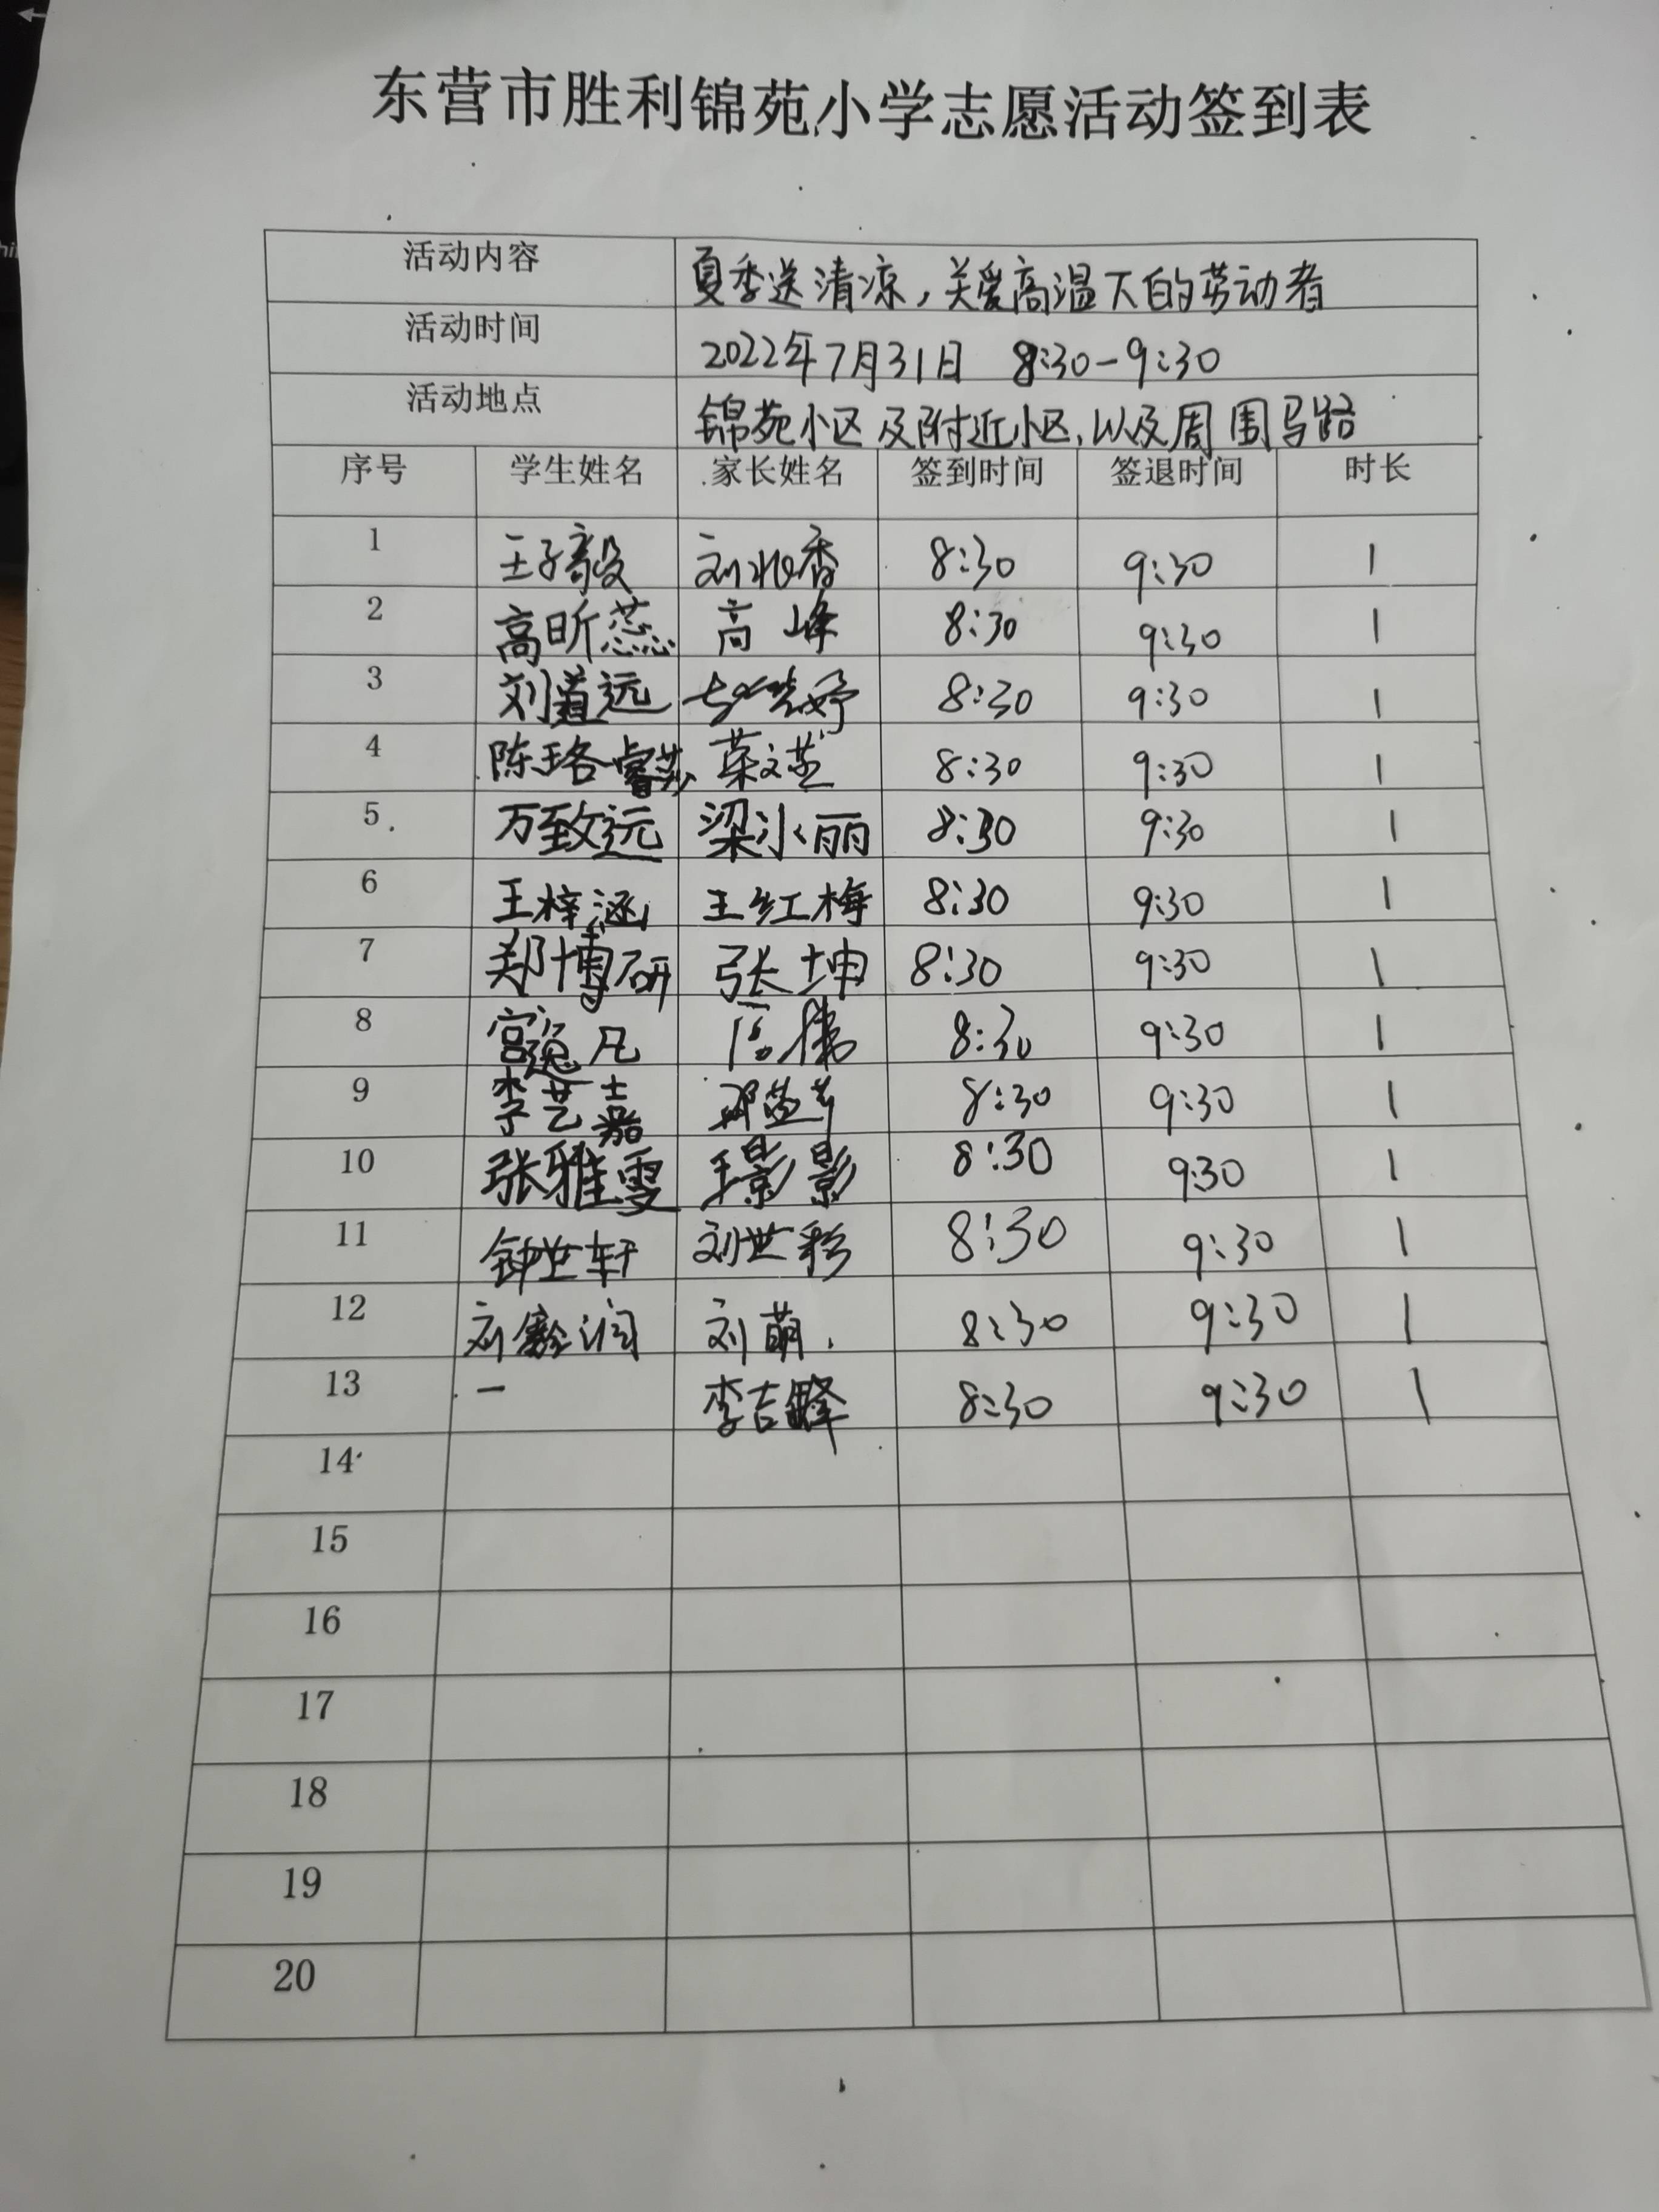 东营市胜利锦苑小学志愿活动签到表
活动内容 夏季送清凉，关爱高温下的劳动者
活动时间 2022年7月31日 8:30-9:30
活动地点 锦苑小区及附近小区，以及周围马路
序号 学生姓名 家长姓名 签到时间 签退时间 时长
1 王子毅 刘兆香 8:30 9:30 1
2 高昕蕊 高峰 8:30 9:30 1
3 刘道远 8:30 9:30 1
4 陈珞睿莎 8:30 9:30 1
5 万致远 梁小丽 8:30 9:30 1
6 王梓涵 王红梅 8:30 9:30 1
7 郑博研 张坤 8:30 9:30 1
8 宫逸凡 8:30 9:30 1
9 李艺嘉 8:30 9:30 1
10 张雅雯 王影影 8:30 9:30 1
11 钟世轩 刘世彩 8:30 9:30 1
12 刘 润 刘萌 8:30 9:30 1
13 一 李吉锋 8:30 9:30 1
14
15
16
17
18
19
20